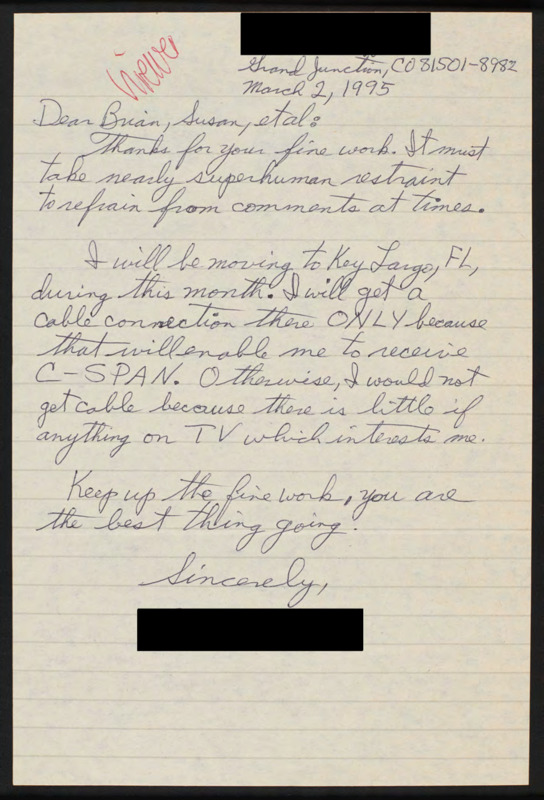 viewer
Grand Junction, CO 81501-8982
March 2, 1995
Dear Brian, Susan, et al:
Thanks for your fine work. It must
take nearly superhuman restraint
to refrain from comments at times.
I will be moving to Key Largo, FL,
during this month. I will get a
cable connection there ONLY because
that will enable me to receive
C-SPAN. Otherwise, I would not
get cable because there is little if
anything on TV which interests me.
Keep up the fine work, you are
the best thing going.
Sincerely,